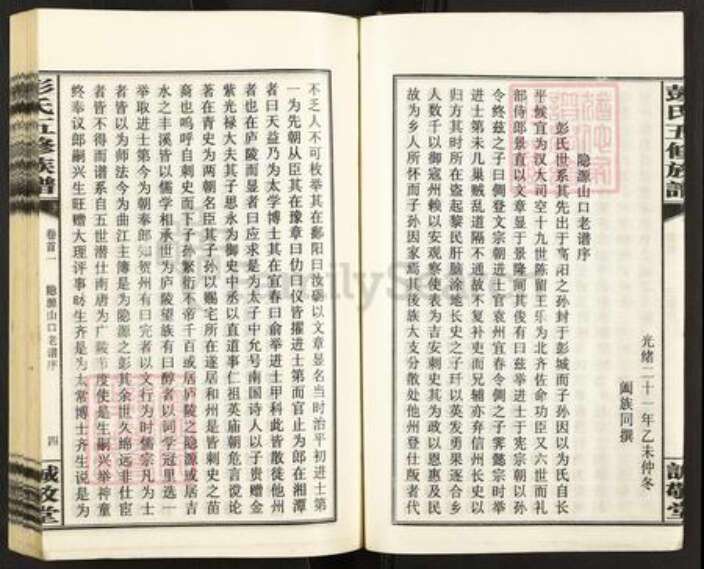 彭氏五修族譜
誠敬堂
光緒二十一年乙未仲冬
闔族同撰
隐源山口老谱序
彭氏世系其先出于高阳之孙封于彭城而子孙因以为氏自长
平候宜为汉大司空十九世陈留王乐为北齐佐命功臣又六世而礼
部侍郎景直以文章显于景隆间其俊有曰兹举进士于宪宗朝以孙
令终兹之子曰倜登文宗朝进士官袁州宜春令倜之子霁懿宗时举
进士第未几巢贼乱道隔不通故不复补吏而兄辅亦弃信州长史以
归方其时所在盗起黎民肝脑涂地长史之子玕以英发勇果逐合乡
人数千以御寇州赖以安观察使表为吉安刺史其为政以恩惠及民
故为乡人所怀而子孙因家焉其後族大支分散处他州登仕版者代
不乏人不可枚举其在鄱阳曰汝砺以文章显名当时治平初进士第
一为先朝从臣其在豫章曰仂曰仪皆擢进士第而官止为郎在湘潭
者曰天益乃为太学博士其在宜春曰俞举进士甲科此皆散徙他州
者也在庐陵而显者曰应求是为太子中允号南国诗人以子贵赠金
紫光禄大夫其子思永为御史中丞以直道事仁祖英庙朝危言谠论
著在青史为两朝名臣其子孙以赐宅所在遂居和州是皆刺史之苗
裔也呜呼自刺史而下子孙繁衍不啻千百或居庐陵之隐源或居吉
水之丰溪皆以儒学相承世为庐陵望族有曰醇者以词学冠里选一
举取进士第今为朝奉郎知贺州有曰完者以文行为时儒宗凡为士
者皆以为师法今为曲江主簿是为隐源之彭其余世久绵远非仕宦
者皆不得而谱系自五世潜仕南唐为广陵节度使是生嗣兴举神童
终奉议郎嗣兴生旺赠大理评事旸生齐是为太常博士齐生说是为
彭氏五修族譜
卷首一
隐源山口老谱序
四
誠敬堂